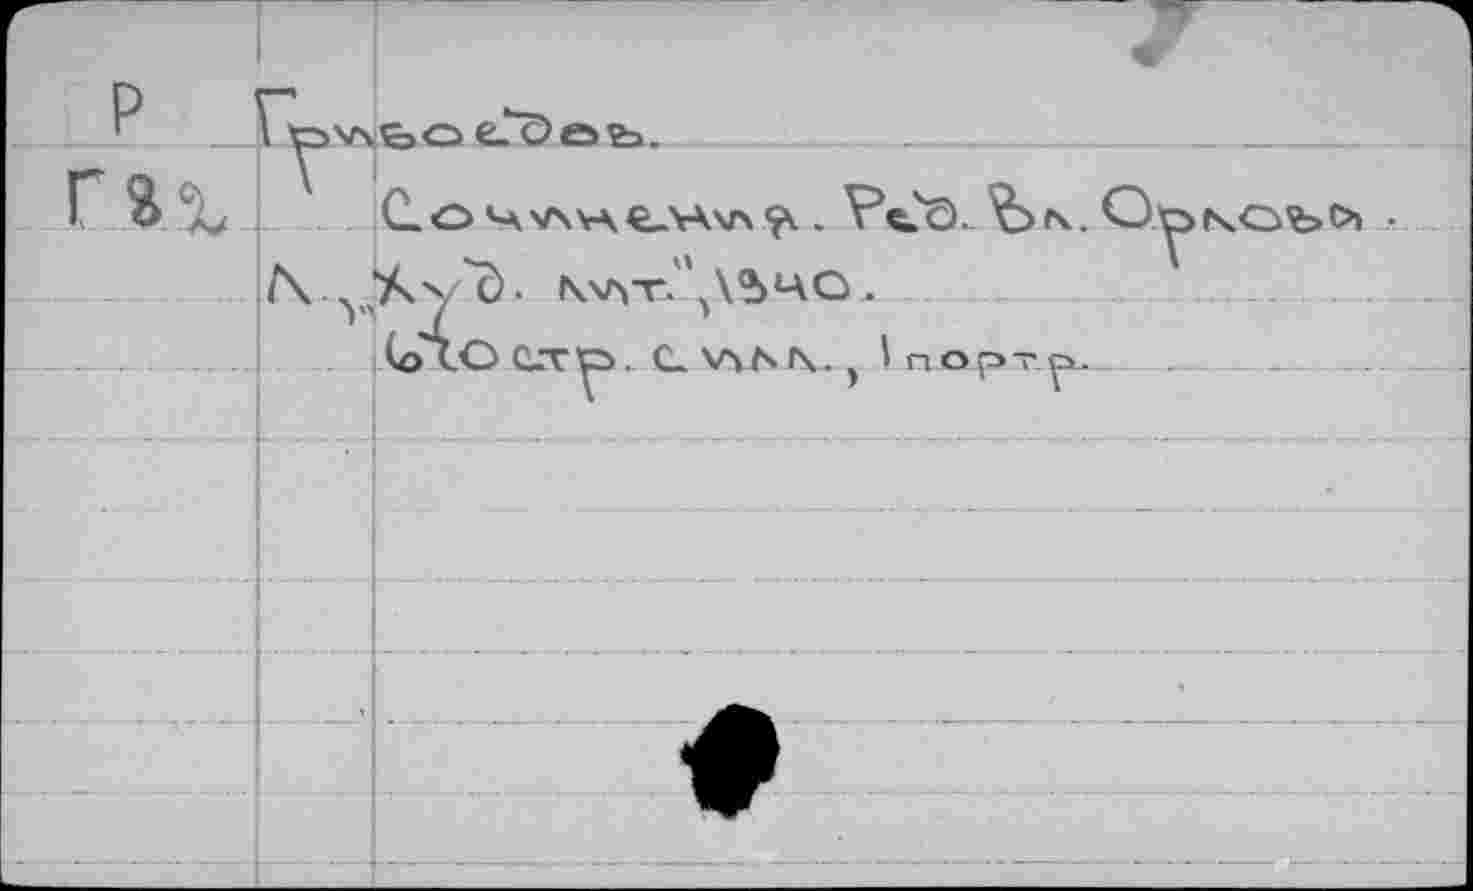 Р Грибоедов.
Г82 Сочинения. Ред. Вл. Орлова.
Л., „Худ. лит.", 1940.
670 стр. с илл., 1 портр.